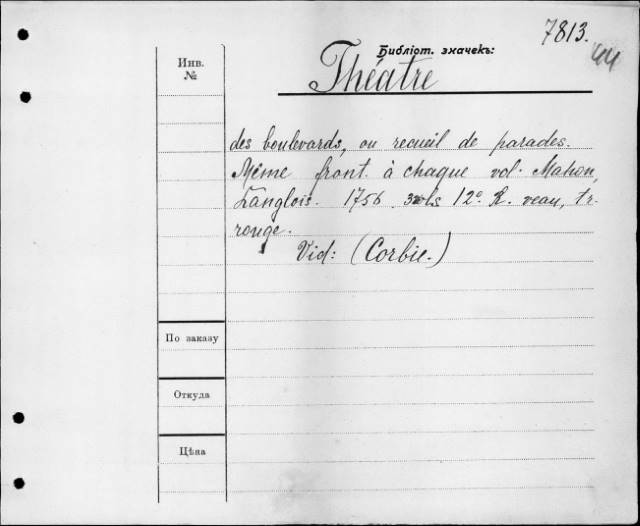 7813.
44
Библіот. значекъ:
Théatre
Инв.
№
des boulevards, ou recueil de parades.
Même front. à chaque vol. Mahon,
Langlois. 1756 3 vols 12º. R. veau, tr.
rouge.
Vid: (Corbie.)
По заказу
Откуда
Цѣна